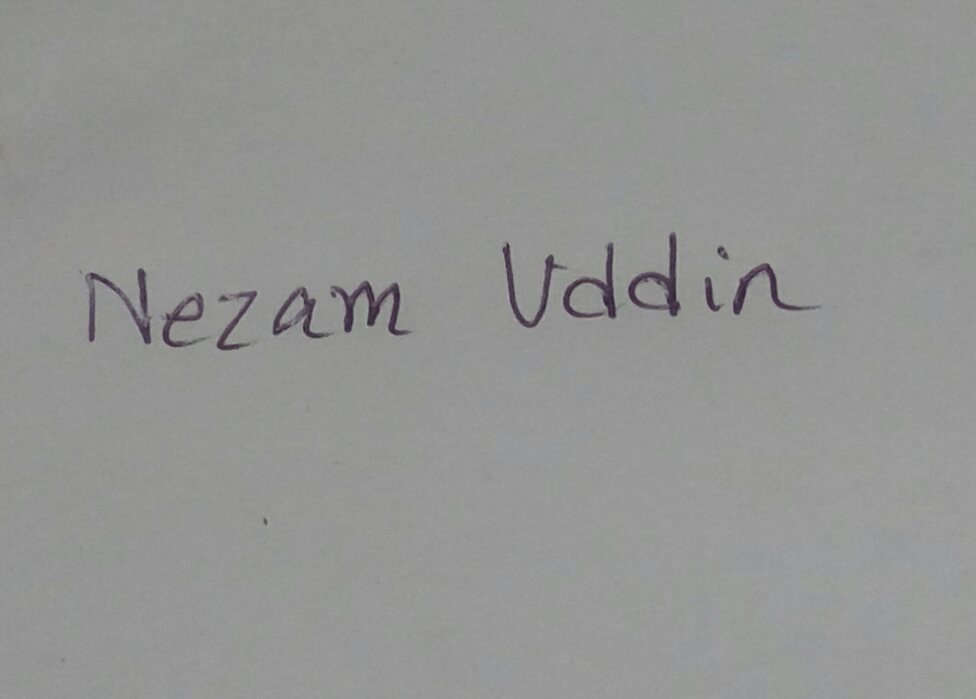 Nezam Uddin